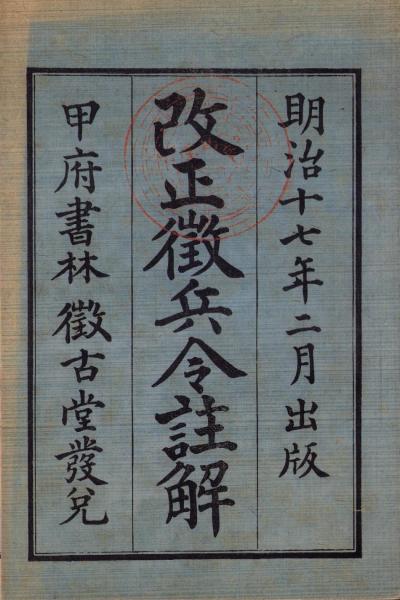 明治十七年二月出版
改正徴兵令註解
甲府書林 徴古堂發兌